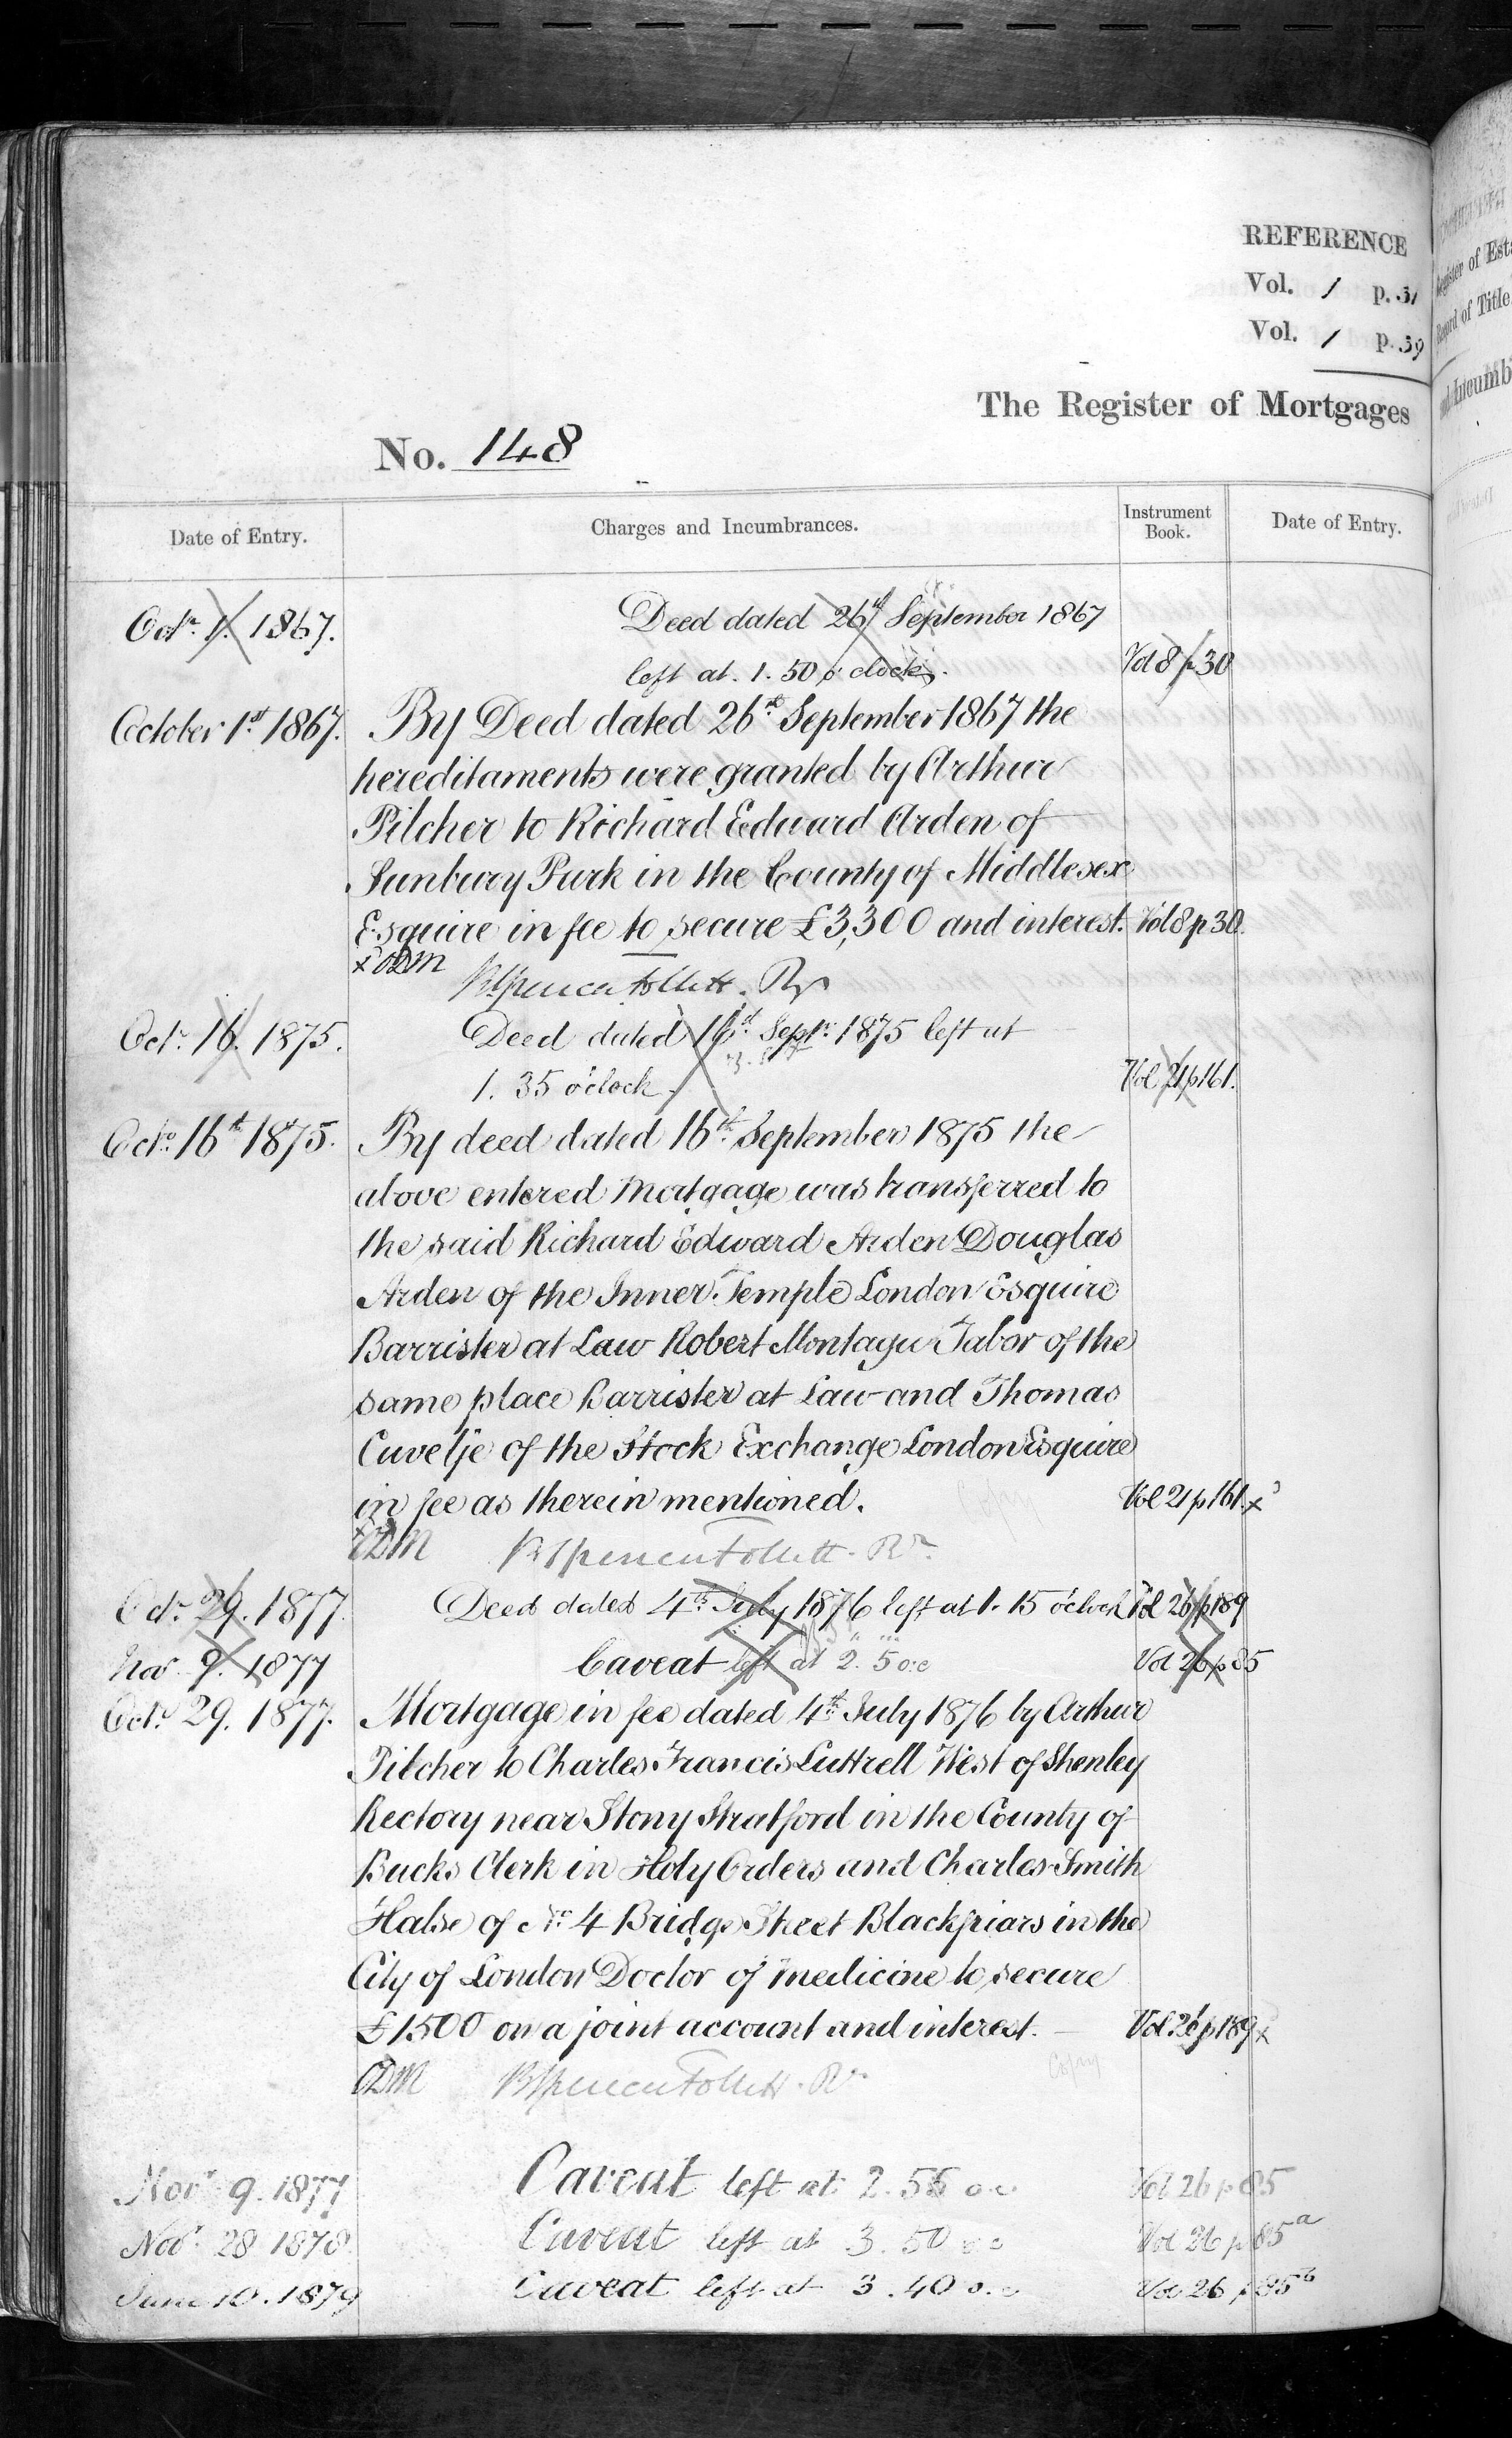 REFERENCE
Vol. 1 p. 31
Vol. 1 p. 39
The Register of Mortgages
No. 148
Date of Entry. Charges and Incumbrances. Instrument Book. Date of Entry.
Octr. 1. 1867. Deed dated 26th September 1867
left at. 1. 50 o'clock. Vol 8 p 30
October 1st 1867. By Deed dated 26th September 1867 the
hereditaments were granted by Arthur
Pilcher to Richard Edward Arden of
Sunbury Park in the County of Middlesex
Esquire in fee to secure £3,300 and interest. Vol 8 p 30.
BSpencer Follett. Rr
Octr. 16. 1875. Deed dated 16th Septr. 1875 left at
1. 35 o'clock. Vol 21 p 161.
Octr. 16th 1875. By deed dated 16th September 1875 the
above entered Mortgage was transferred to
the said Richard Edward Arden Douglas
Arden of the Inner Temple London Esquire
Barrister at Law Robert Montagu Tabor of the
same place Barrister at Law and Thomas
Cuvelje of the Stock Exchange London Esquire
in fee as therein mentioned. Vol 21 p 161. x
BSpencer Follett. Rr.
Octr. 29. 1877. Deed dated 4th July 1876 left at 1. 15 o'clock Vol 26 p 189
Novr. 9. 1877 Caveat left at 2. 5 o.c Vol 26 p 85
Octr. 29. 1877. Mortgage in fee dated 4th July 1876 by Arthur
Pilcher to Charles Francis Luttrell West of Shenley
Rectory near Stony Stratford in the County of
Bucks Clerk in Holy Orders and Charles Smith
Halse of No. 4 Bridge Street Blackfriars in the
City of London Doctor of Medicine to secure
£1500 on a joint account and interest. Vol 26 p 189 x
BSpencer Follett. Rr
Copy
Novr. 9. 1877 Caveat left at 2. 55 o.c Vol 26 p 85
Novr. 28 1878. Caveat left at 3. 50 o.c Vol 26 p 85a
June 10. 1879 Caveat left at 3. 40 o.c Vol 26 p 85b